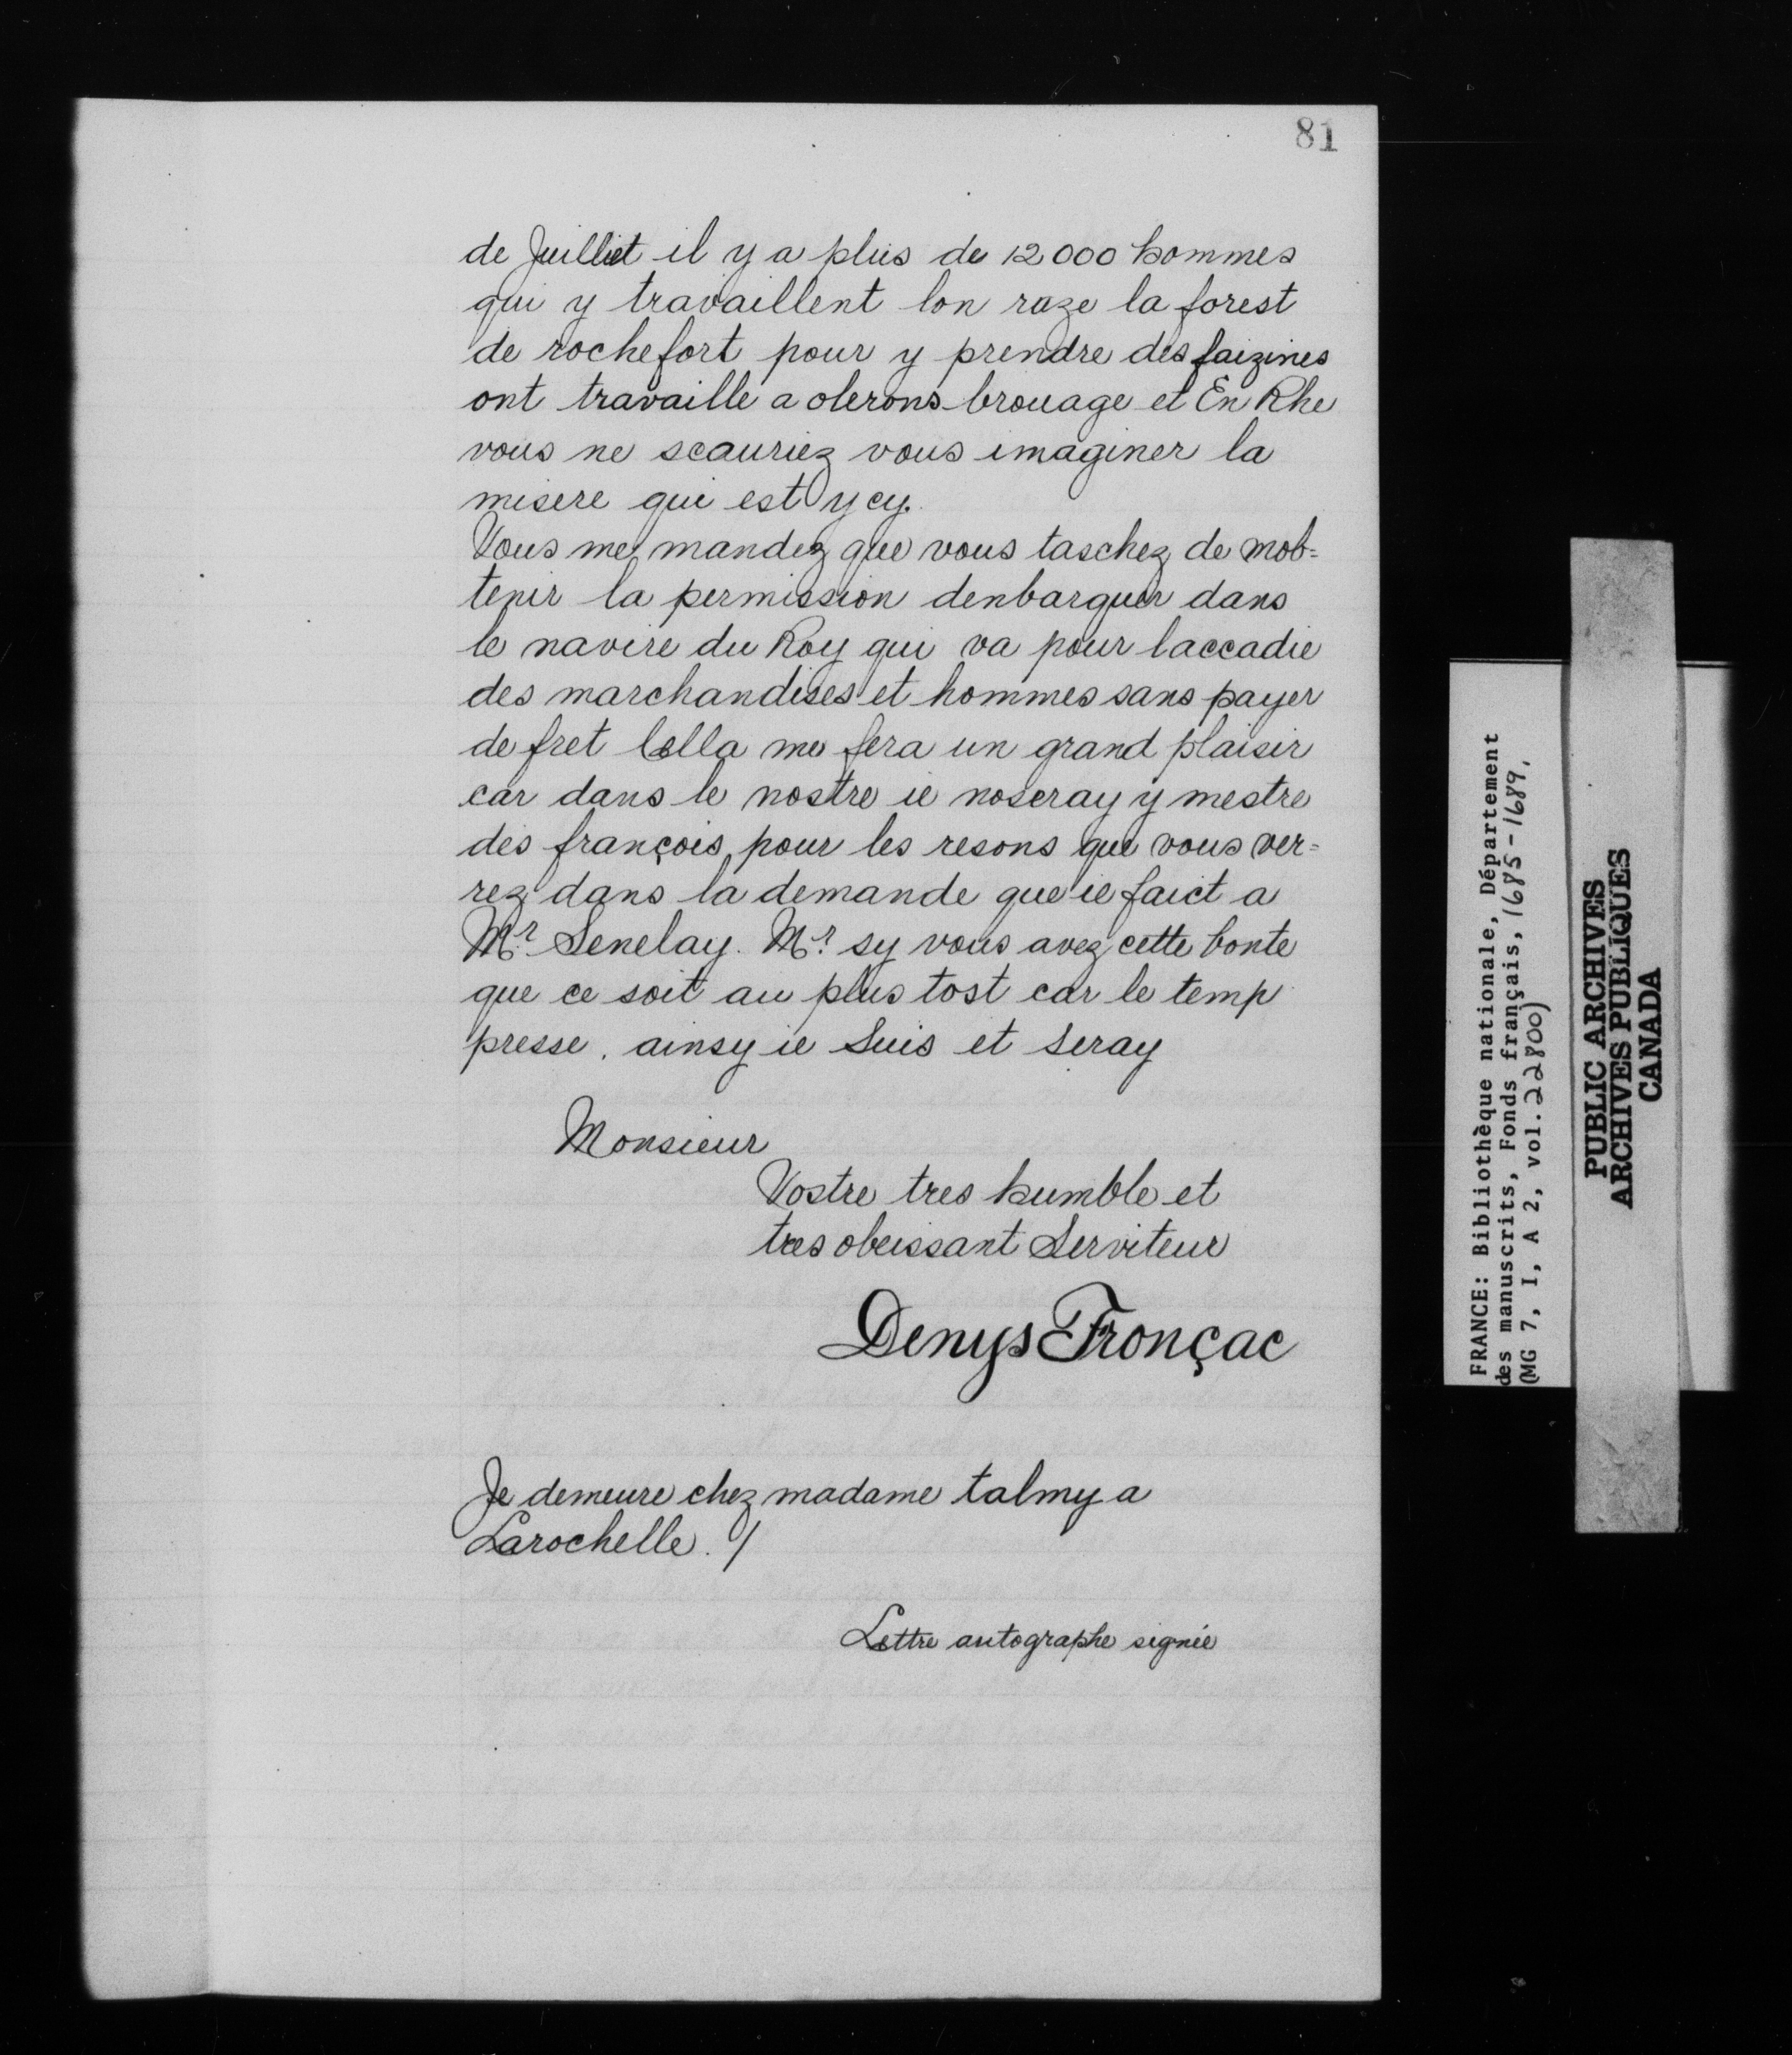 81
de Juilliet il y a plus de 12000 hommes
qui y travaillent lon raze la forest
de rochefort pour y prendre des faizines
ont travaille a olerons brouage et En Rhe
vous ne scauriez vous imaginer la
misere qui est ycy.
Vous me mandez que vous taschez de mob=
tenir la permission denbarquer dans
le navire du Roy qui va pour laccadie
des marchandises et hommes sans payer
de fret Cella me fera un grand plaisir
car dans le nostre ie noseray y mestre
des françois, pour les resons que vous ver=
rez dans la demande que ie faict a
Mr. Senelay. Mr. sy vous avez cette bonte
que ce soit au plus tost car le temp
presse. ainsy ie Suis et Seray
Monsieur
Vostre tres humble et
tres obeissant Serviteur
Denys Fronçac
Je demeure chez madame talmy a
Larochelle. /
Lettre autographe signée
FRANCE: Bibliothèque nationale, Département
des manuscrits, Fonds français, 1685-1689.
(MG 7, I, A 2, vol. 22800)
PUBLIC ARCHIVES
ARCHIVES PUBLIQUES
CANADA